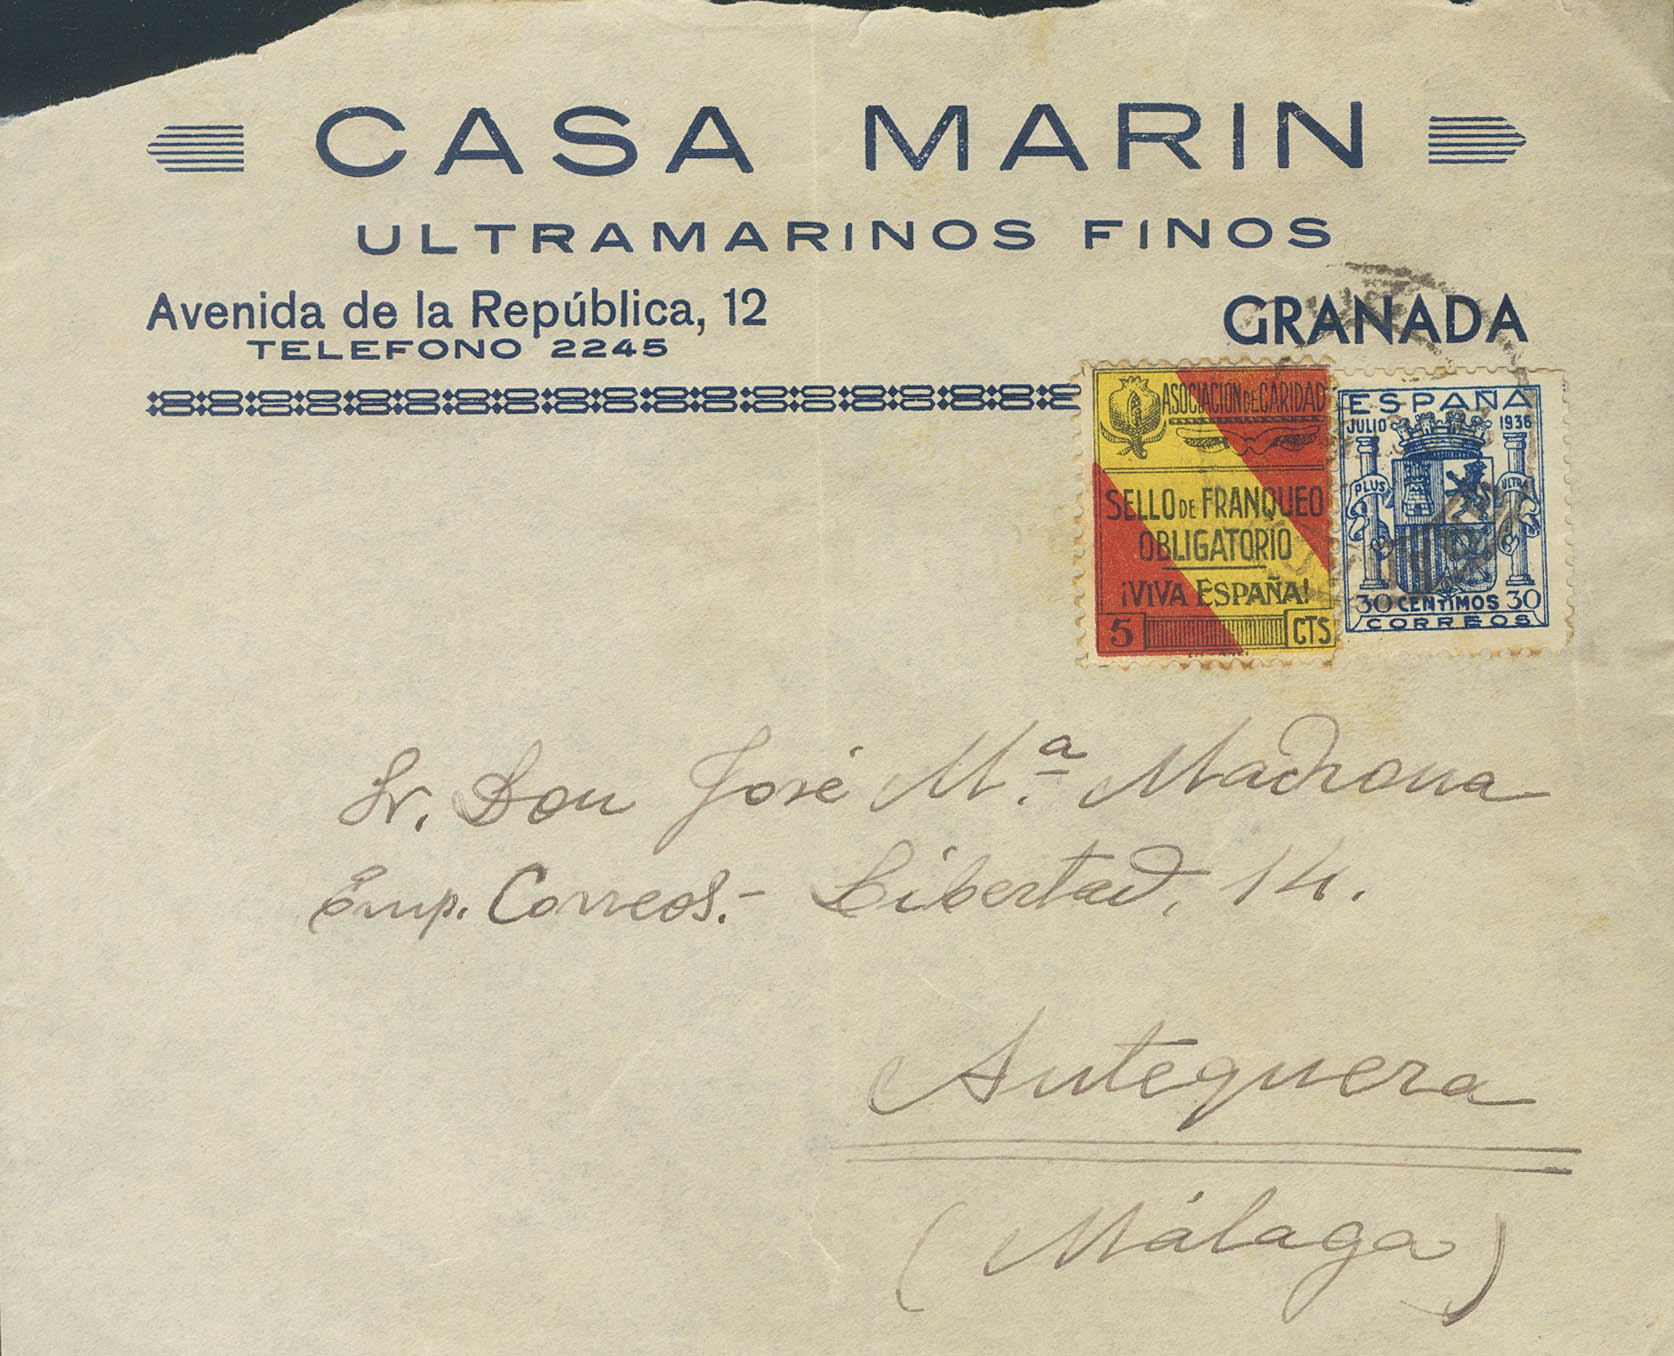 CASA MARIN
ULTRAMARINOS FINOS
Avenida de la República, 12
TELEFONO 2245
GRANADA
ASOCIACION DE CARIDAD
SELLO DE FRANQUEO
OBLIGATORIO
¡VIVA ESPAÑA!
5 CTS
ESPAÑA
JULIO 1936
PLUS ULTRA
30 CENTIMOS 30
CORREOS
Sr. Don José Mª. Madrona
Emp. Correos.- Libertad, 14.
Antequera
(Málaga)